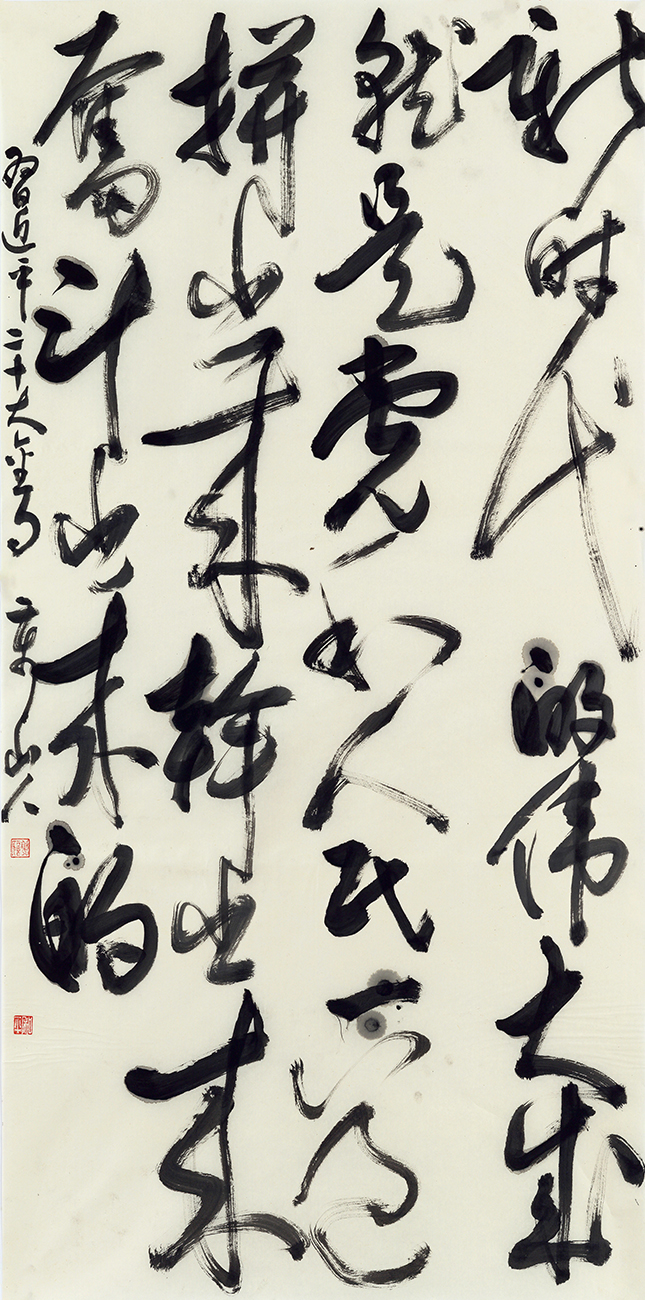 新时代的伟大成
就是党和人民一道
拼出来幹出来
奮斗出来的
習近平二十大金句 山人